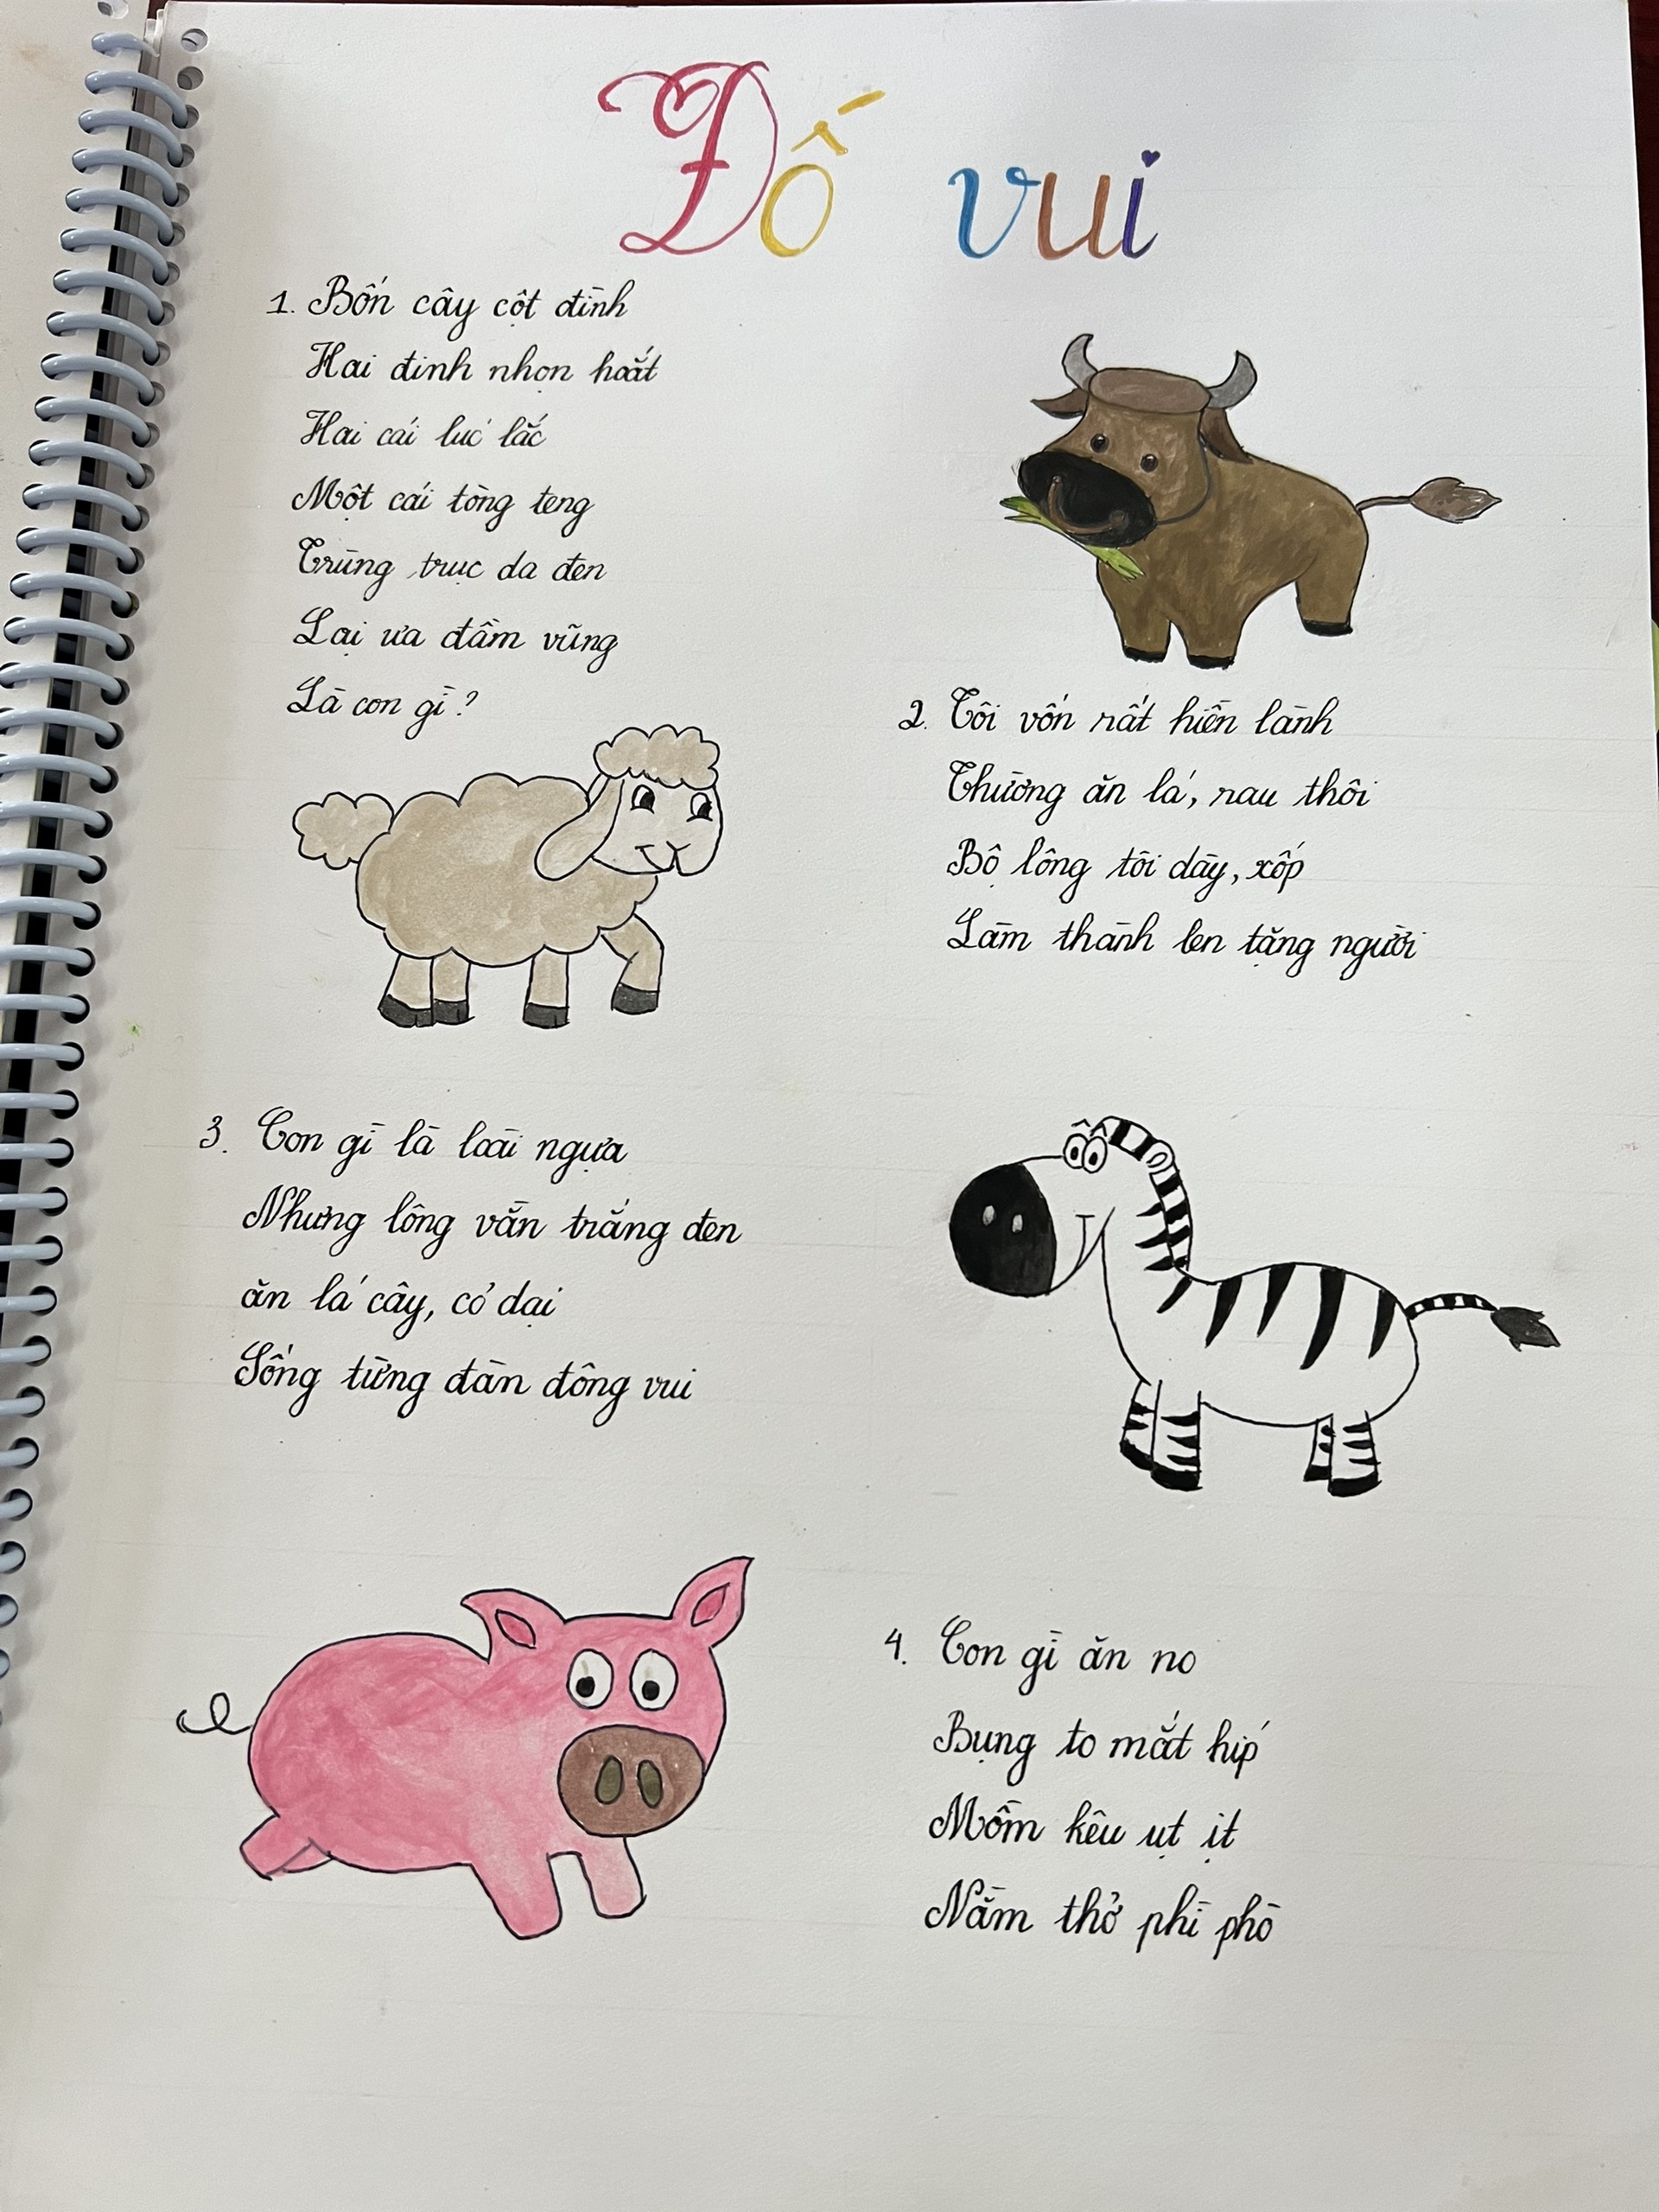 Đố vui
1. Bốn cây cột đình
Hai đinh nhọn hoắt
Hai cái lúc lắc
Một cái tòng teng
Trùng trục da đen
Lại ưa đầm vũng
Là con gì?
2. Tôi vốn rất hiền lành
Thường ăn lá, rau thôi
Bộ lông tôi dày, xốp
Làm thành len tặng người
3. Con gì là loài ngựa
Nhưng lông vằn trắng đen
ăn lá cây, cỏ dại
Sống từng đàn đông vui
4. Con gì ăn no
Bụng to mắt híp
Mồm kêu ụt ịt
Nằm thở phì phò